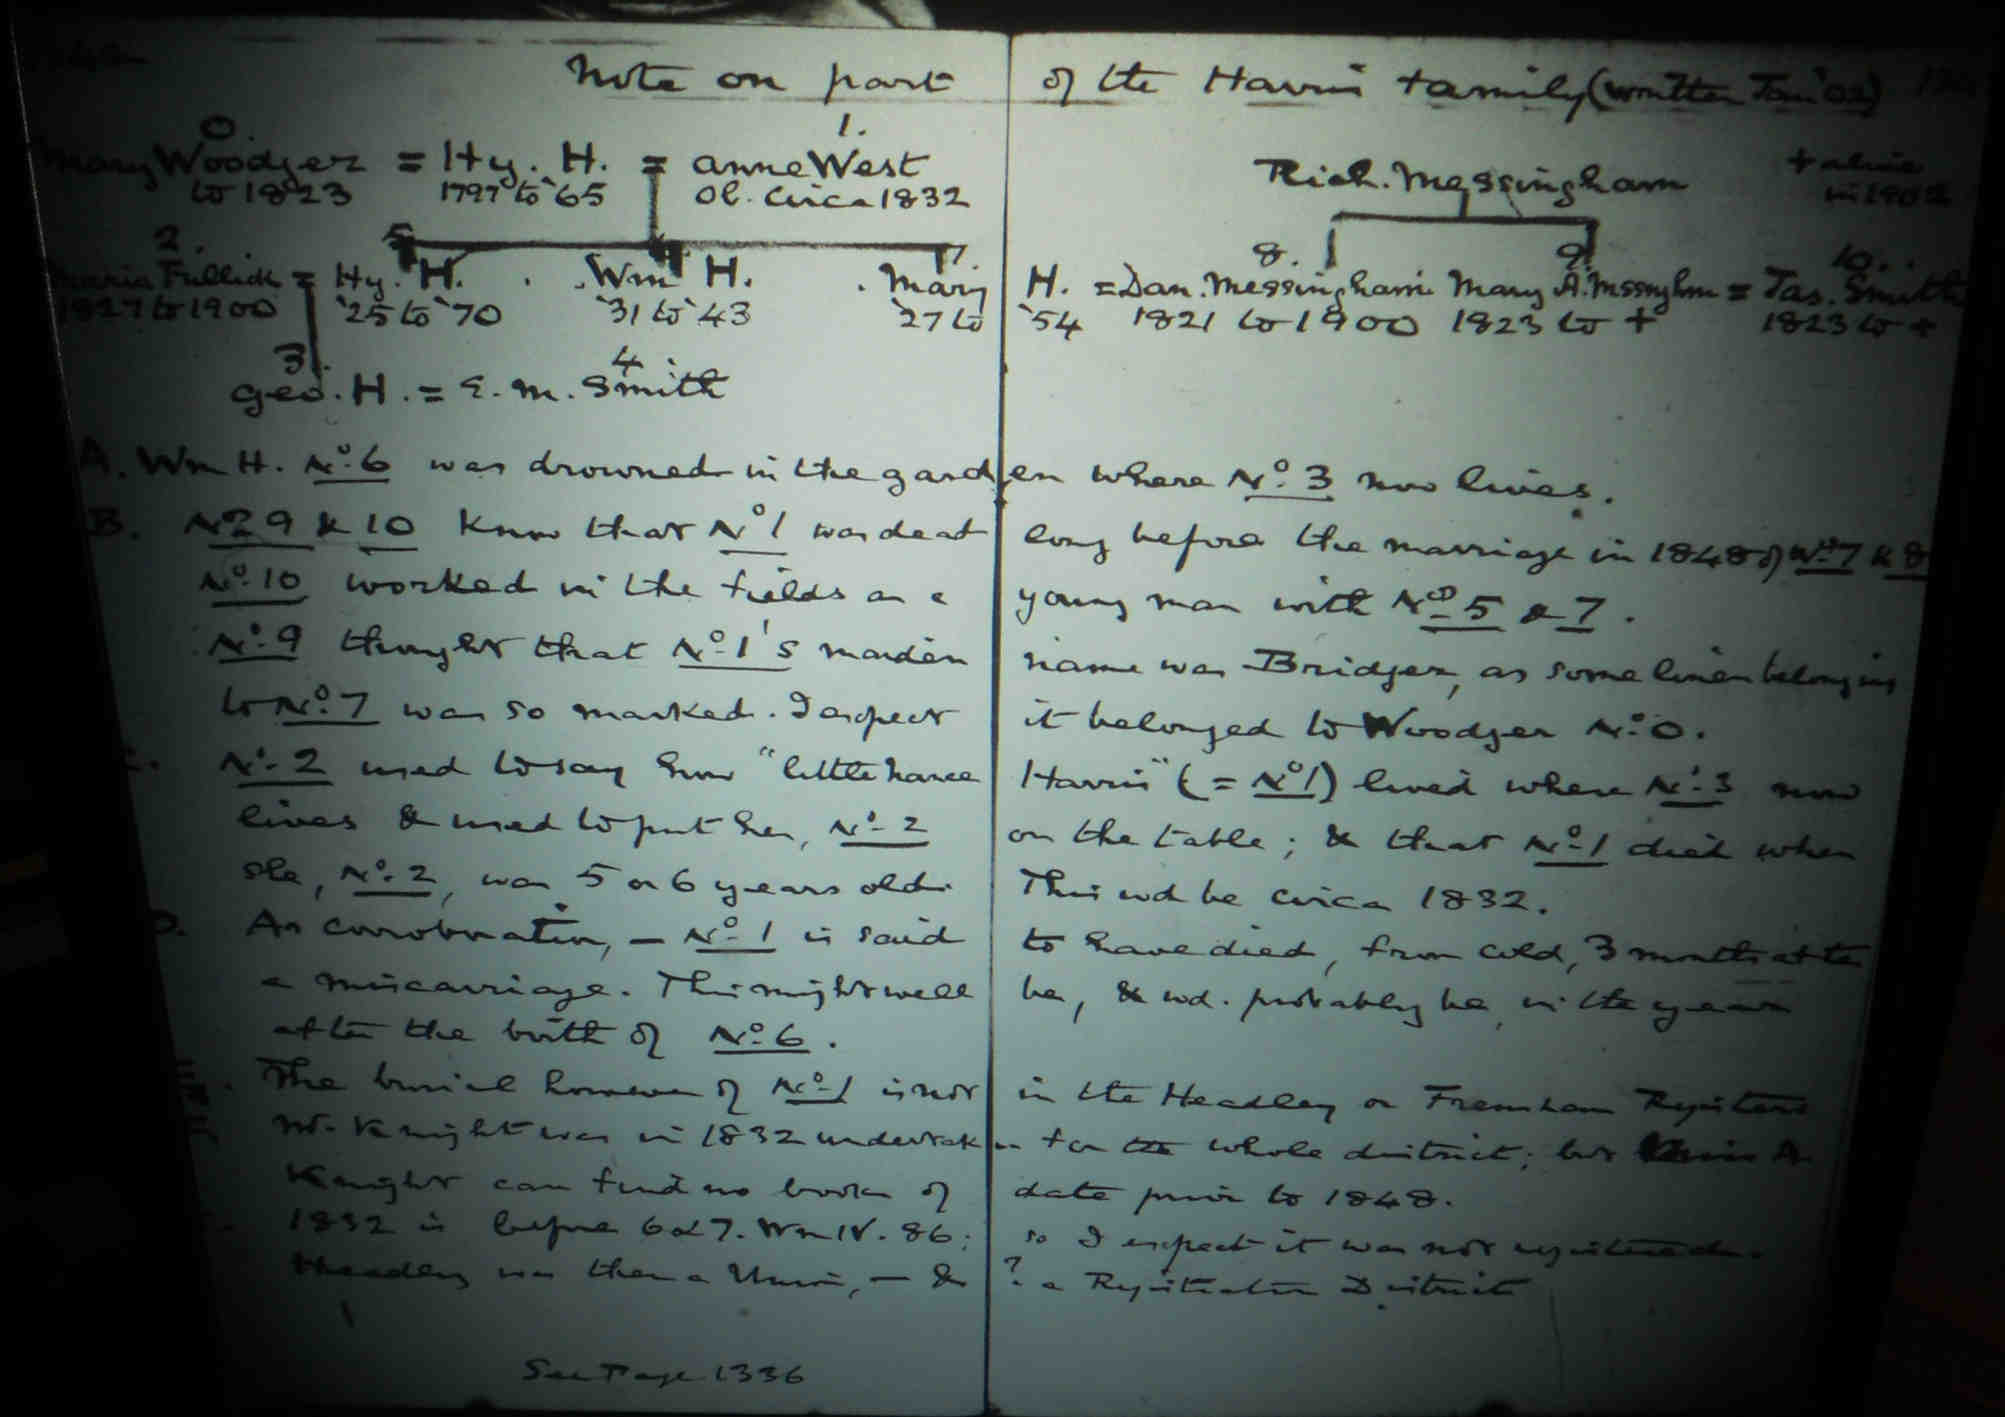 Note on part of the Harris family (written Jan '02)
0. 1.
Mary Woodger = Hy. H. = Anne West Rich. Messingham + alive
to 1823 1797 to '65 Ob. circa 1832 in 1902
2. 5 6 7. 8. 9 10.
Maria Fullick = Hy. H. . Wm H. . Mary H. = Dan. Messingham. Mary A. Mssnghm = Jas. Smith
1827 to 1900 '25 to '70 '31 to '43 '27 to '54 1821 to 1900 1823 to + 1823 to +
3. 4
Geo. H. = E. M. Smith
A. Wm H. No. 6 was drowned in the garden where No. 3 now lives.
B. Nos 9 & 10 know that No 1 was dead long before the marriage in 1848 of Nos 7 & 8
No. 10 worked in the fields as a young man with Nos 5 & 7.
No. 9 thought that No. 1's maiden name was Bridger, as some linen belonging
to No. 7 was so marked. I expect it belonged to Woodger No. 0.
C. No. 2 used to say how "little nance Harris" (= No 1) lived where No. 3 now
lives & used to put her, No. 2 on the table; & that No. 1 died when
she, No. 2, was 5 or 6 years old. This wd be circa 1832.
D. As corroboration, — No. 1 is said to have died, from cold, 3 months after
a miscarriage. This might well be, & wd. probably be, in the year
after the birth of No. 6.
The burial however of No. 1 is not in the Headley or Frensham Registers
W. Knight was in 1832 undertaker for the whole district; but
Knight can find no books of date prior to 1848.
1832 is before 6 & 7. Wm IV. 86; so I expect it was not registered.
Headley was then a Union, — & ? a Registration District
See Page 1336